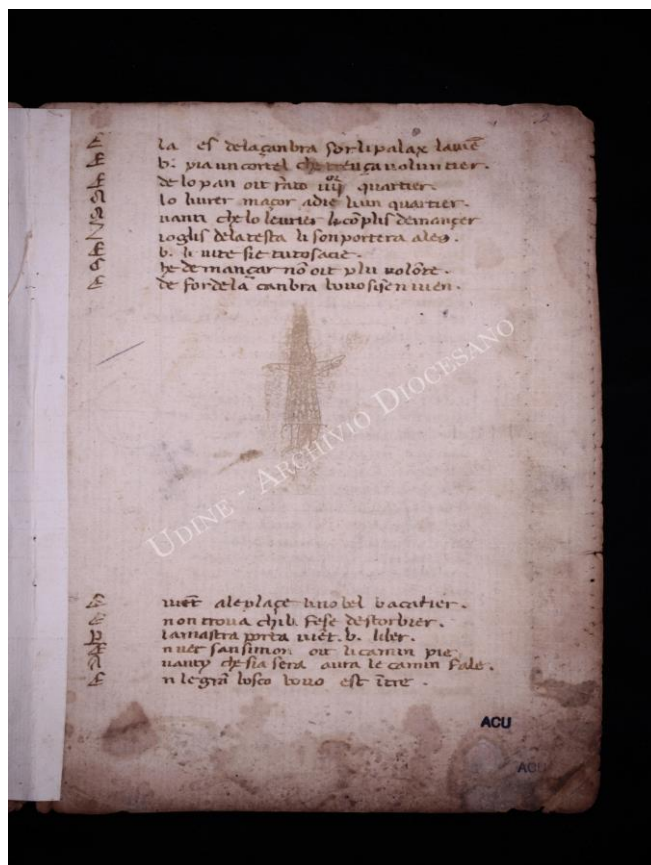 la es de laçanbra sor li palax la viē
b. pia un cortel che trença voluntier.
de lo pan oit fato iiij quartier.
lo livrer maçor a die l un quartier.
vanti che lo levrier li cōplis de mançer
de la testa li son
b. li vite sie tuto sacie.
he de mançar nō oit plu volōte.
de for de la canbra bovo si sen vien.
UDINE - ARCHIVIO DIOCESANO
viēt a le plaçe bel bacalier.
non trova chi li fese destorbier.
la mastra porta viēt. b. liber.
n vēr san simon oit li camin pie
che sia sera avra le camin fale.
n le grā bosco bovo est ītre.
ACU
ACU